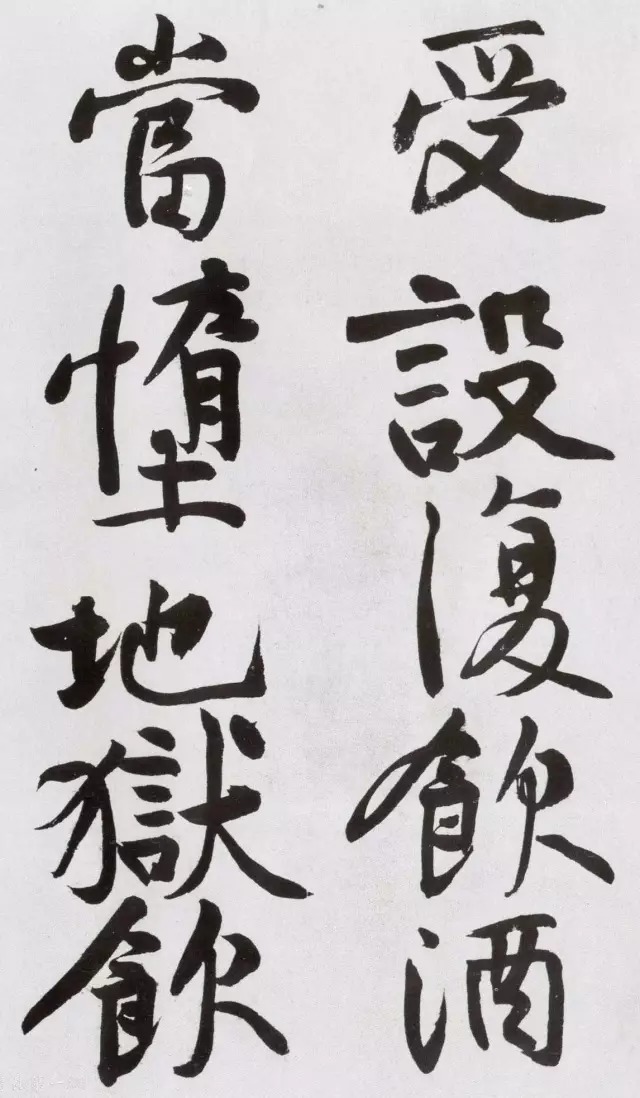 受設復飲酒
當墮地獄飲